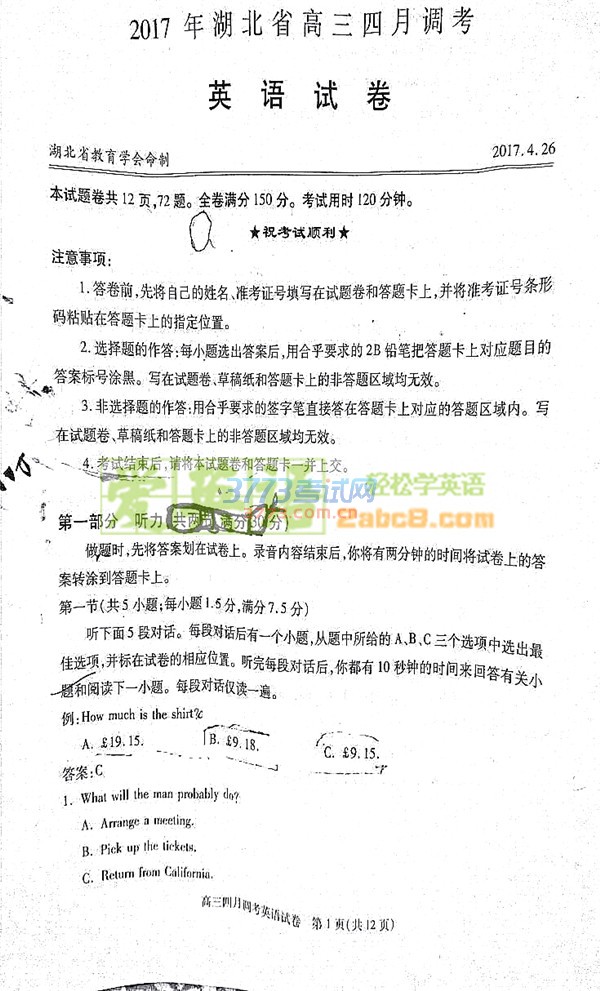 2017 年湖北省高三四月调考
英 语 试 卷
湖北省教育学会命制 2017.4.26
本试题卷共12页,72题。全卷满分150分。考试用时120分钟。
★祝考试顺利★
注意事项:
1.答卷前,先将自己的姓名、准考证号填写在试题卷和答题卡上,并将准考证号条形
码粘贴在答题卡上的指定位置。
2.选择题的作答:每小题选出答案后,用合乎要求的2B铅笔把答题卡上对应题目的
答案标号涂黑。写在试题卷、草稿纸和答题卡上的非答题区域均无效。
3.非选择题的作答:用合乎要求的签字笔直接答在答题卡上对应的答题区域内。写
在试题卷、草稿纸和答题卡上的非答题区域均无效。
4.考试结束后,请将本试题卷和答题卡一并上交。
3773考试网
轻松学英语
.com.cn
2abc8.com
第一部分 听力(共两节,满分30分)
做题时,先将答案划在试卷上。录音内容结束后,你将有两分钟的时间将试卷上的答
案转涂到答题卡上。
第一节(共5小题;每小题1.5分,满分7.5分)
听下面5段对话。每段对话后有一个小题,从题中所给的A、B、C三个选项中选出最
佳选项,并标在试卷的相应位置。听完每段对话后,你都有10秒钟的时间来回答有关小
题和阅读下一小题。每段对话仅读一遍。
例:How much is the shirt?
A. £19.15. B. £9.18. C. £9.15.
答案:C
1. What will the man probably do?
A. Arrange a meeting.
B. Pick up the tickets.
C. Return from California.
高三四月调考英语试卷 第1页(共12页)